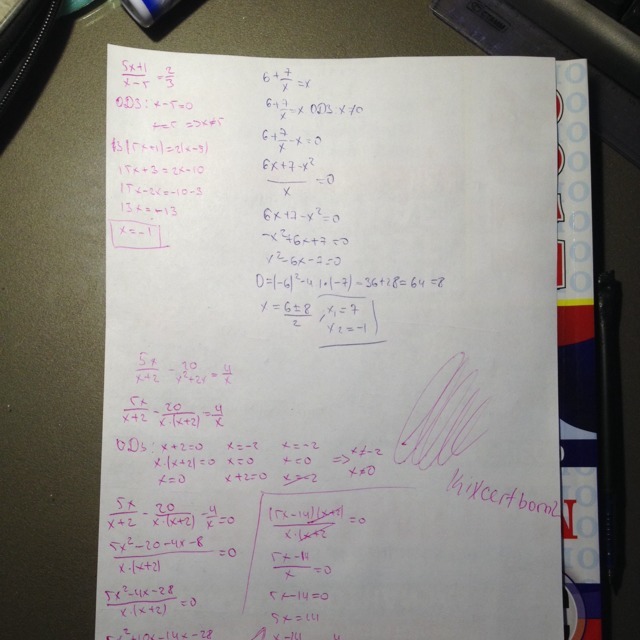 5x+1/x-5 = 2/3
ОДЗ: x-5=0
x=5 => x≠5
3(5x+1)=2(x-5)
15x+3=2x-10
15x-2x=-10-3
13x=-13
x=-1
6+7/x=x
6+7/x=x ОДЗ: x≠0
6+7/x-x=0
6x+7-x²/x=0
6x+7-x²=0
-x²+6x+7=0
x²-6x-7=0
D=(-6)²-4·1·(-7)=36+28=64=8
x=6±8/2 x₁=7
x₂=-1
5x/x+2 - 20/x²+2x = 4/x
5x/x+2 - 20/x·(x+2) = 4/x
ОДЗ: x+2=0 x=-2 x=-2 => x≠-2
x·(x+2)=0 x=0 x=0 x≠0
x=0 x+2=0 x=-2
5x/x+2 - 20/x·(x+2) - 4/x = 0
5x²-20-4x-8/x·(x+2) = 0
5x²-4x-28/x·(x+2) = 0
5x²+10x-14x-28
(5x-14)(x+2)/x·(x+2) = 0
5x-14/x = 0
5x-14=0
5x=14